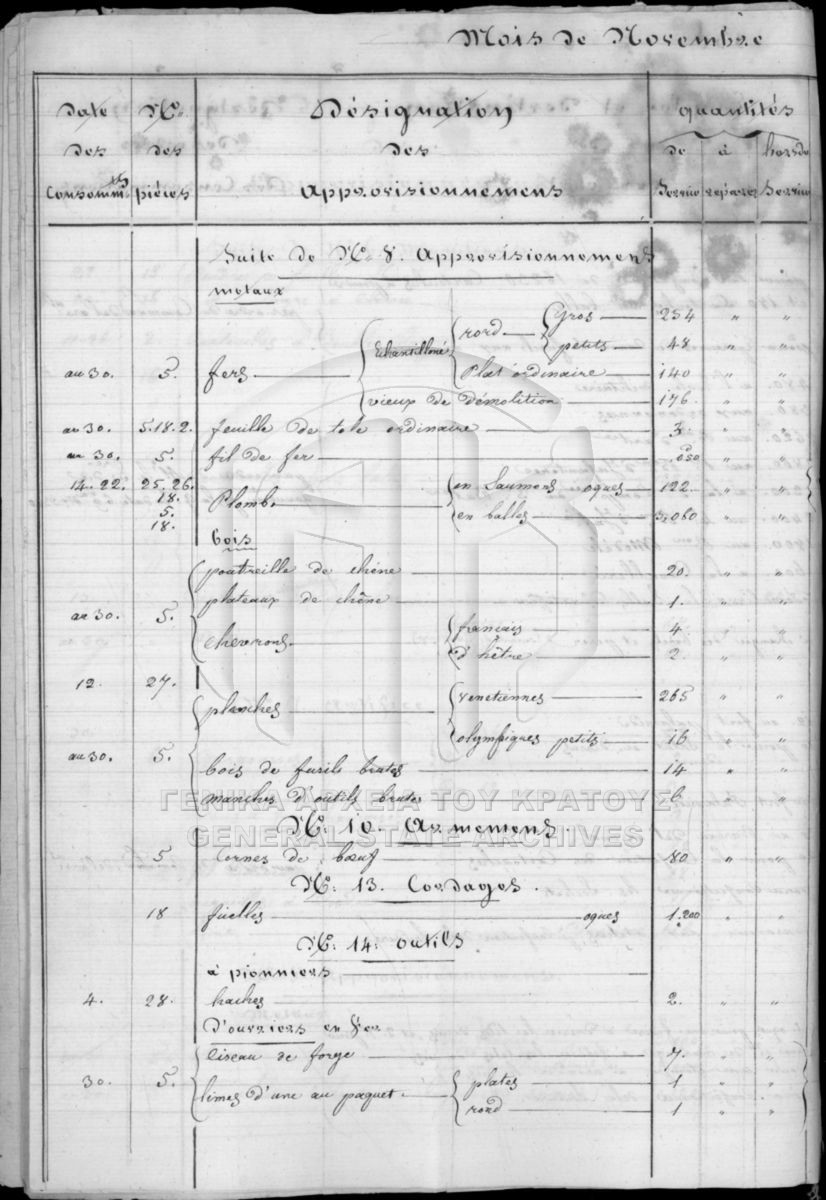 Mois de Novembre
Date des Consommés
No. des pièces
Désignation des Approvisionnemens
quantités
de Service
à réparer
hors de Service
Suite de No. 8. Approvisionnemens
metaux
au 30. 5. fers Echantilloné rond Gros 254 " "
petits 48 " "
Plat ordinaire 140 " "
vieux de démolition 176 " "
au 30. 5.18.2. feuille de tole ordinaire 3. " "
au 30. 5. fil de fer .050 " "
14. 22. 25. 26. 18. 5. 18. Plomb en Saumons oques 122 " "
en balles 3.060 " "
bois
poutreille de chêne 20. " "
plateaux de chêne 1. " "
au 30. 5. chevrons français 4 " "
d'hêtre 2 " "
12. 27. planches venetiennes 265 " "
olympiques petits 13 " "
au 30. 5. bois de fusils brutes 14 " "
manches d'outils brutes 6 " "
ΓΕΝΙΚΑ ΑΡΧΕΙΑ ΤΟΥ ΚΡΑΤΟΥΣ
GENERAL STATE ARCHIVES
No. 10. Armemens.
5 Cornes de bœuf 80 " "
No. 13. Cordages.
18 fiielles oques 1.200 " "
No. 14. outils
à pionniers
4. 28. haches 2. " "
D'ouvriers en fer
Ciseau de forge 7. " "
30. 5. limes d'une au paquet plates 1 " "
rond 1 " "